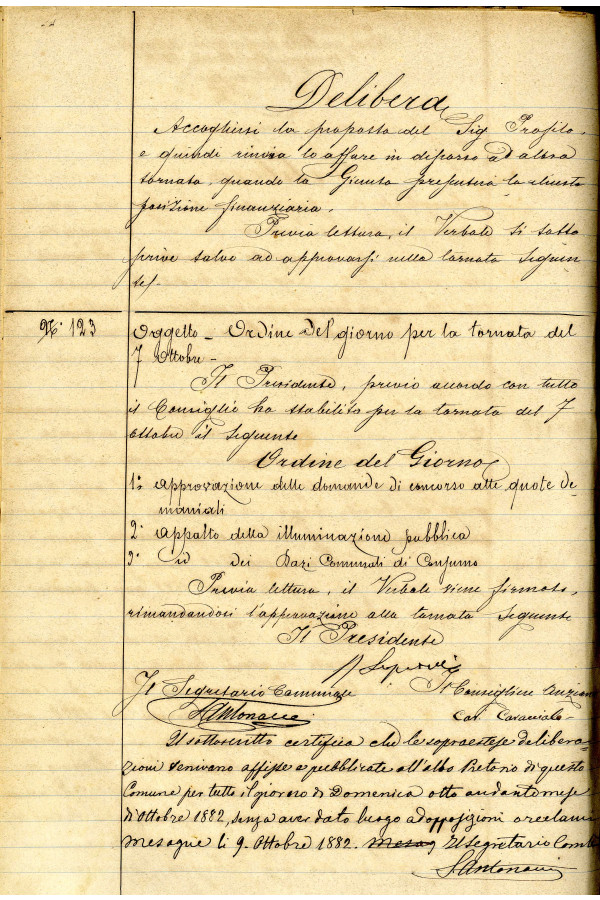 Delibera
Accogliersi la proposta del Sig Profilo,
e quindi rinvia lo affare in disparso ad altra
tornata, quando la Giunta presenterà la
posizione finanziaria.
Previa lettura, il Verbale si sotto
scrive salvo ad approvarsi nella tornata seguen
te/.
N.º 123
Oggetto - Ordine del giorno per la tornata del
7 Ottobre -
Il Presidente, previo accordo con tutto
il Consiglio ha stabilito per la tornata del 7
Ottobre il seguente
Ordine del Giorno
1º approvazione delle domande di concorso alle quote de-
maniali
2º appalto della illuminazione pubblica
3º Id dei Dazi Comunali di Consumo
Previa lettura, il Verbale viene firmato,
rimandandosi l'approvazione alla tornata seguente
Il Presidente
Il Segretario Comunale Il Consigliere Anziano
S Antonacci Cav. Cavaciolo
Il sottoscritto certifica che le sopraestese delibera-
zioni venivano affisse e pubblicate all'albo Pretorio di questo
Comune per tutto il giorno di Domenica otto andante mese
d'Ottobre 1882, senza aver dato luogo ad opposizioni o reclami
Mesagne li 9. Ottobre 1882. Mesag Il Segretario Comle
S Antonacci